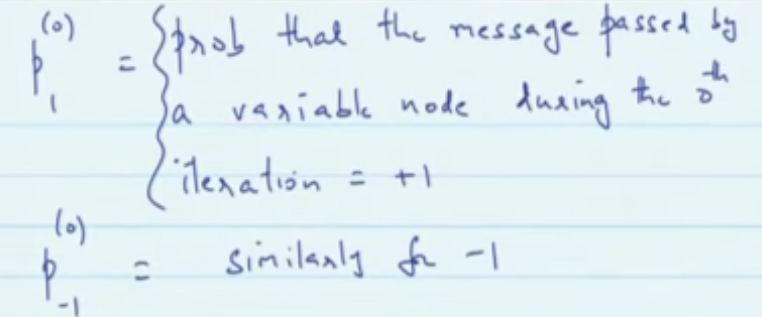 p₁⁽⁰⁾ = { prob that the message passed by
a variable node during the 0th
iteration = +1
p₋₁⁽⁰⁾ = similarly for -1